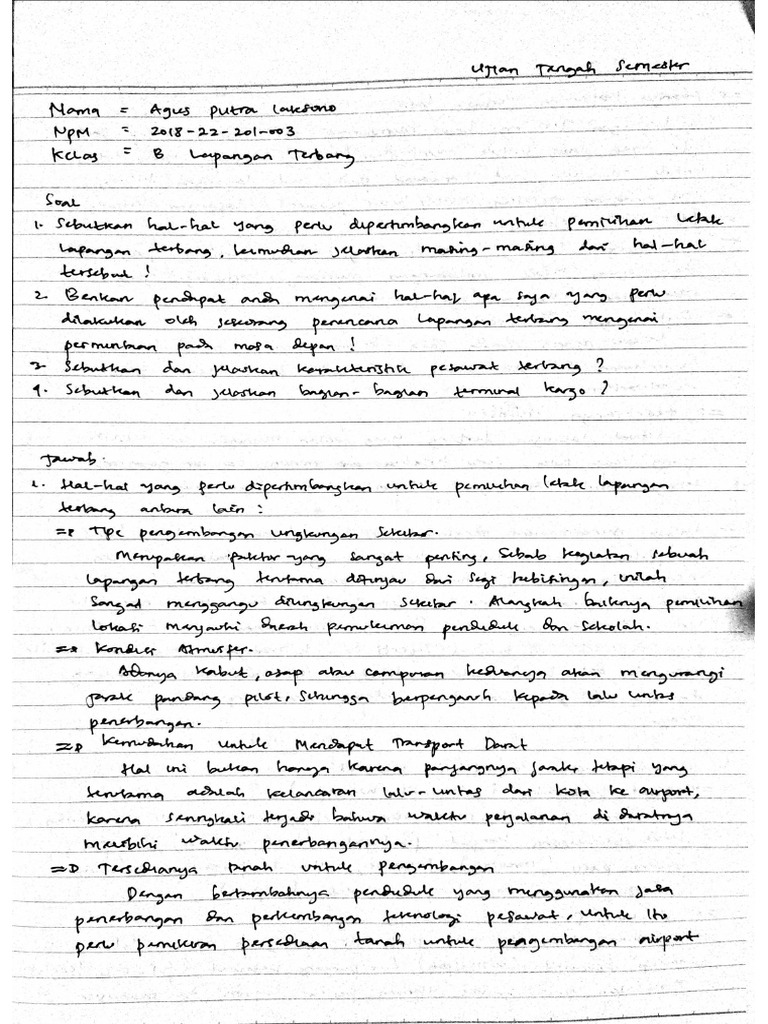 Ujian Tengah Semester
Nama = Agus Putra Laksono
NPM = 2018-22-201-003
Kelas = B Lapangan Terbang
Soal
1. Sebutkan hal-hal yang perlu dipertimbangkan untuk pemilihan letak
lapangan terbang, kemudian jelaskan masing-masing dari hal-hal
tersebut !
2. Berikan pendapat anda mengenai hal-hal apa saja yang perlu
dilakukan oleh seseorang perencana lapangan terbang mengenai
permintaan pada masa depan !
3. Sebutkan dan jelaskan karakteristik pesawat terbang ?
4. Sebutkan dan jelaskan bagian-bagian terminal kargo ?
Jawab.
1. Hal-hal yang perlu dipertimbangkan untuk pemilihan letak lapangan
terbang antara lain :
=> Tipe pengembangan lingkungan sekitar.
Merupakan faktor yang sangat penting, Sebab kegiatan sebuah
lapangan terbang terutama ditinjau dari segi kebisingan, inilah
sangat menggangu dilingkungan sekitar. Alangkah baiknya pemilihan
lokasi menjauhi daerah pemukiman penduduk dan sekolah.
=> Kondisi Atmosfer.
Adanya kabut, asap atau campuran keduanya akan mengurangi
jarak pandang pilot, Sehingga berpengaruh kepada lalu lintas
penerbangan.
=> Kemudahan untuk Mendapat Transport Darat
Hal ini bukan hanya karena panjangnya jarak tetapi yang
terutama adalah kelancaran lalu-lintas dari kota ke airport,
karena seringkali terjadi bahwa waktu perjalanan di daratnya
melebihi waktu penerbangannya.
=> Tersedianya tanah untuk pengembangan
Dengan bertambahnya penduduk yang menggunakan jasa
penerbangan dan perkembangan teknologi pesawat, untuk itu
perlu pemikiran persediaan tanah untuk pengembangan airport